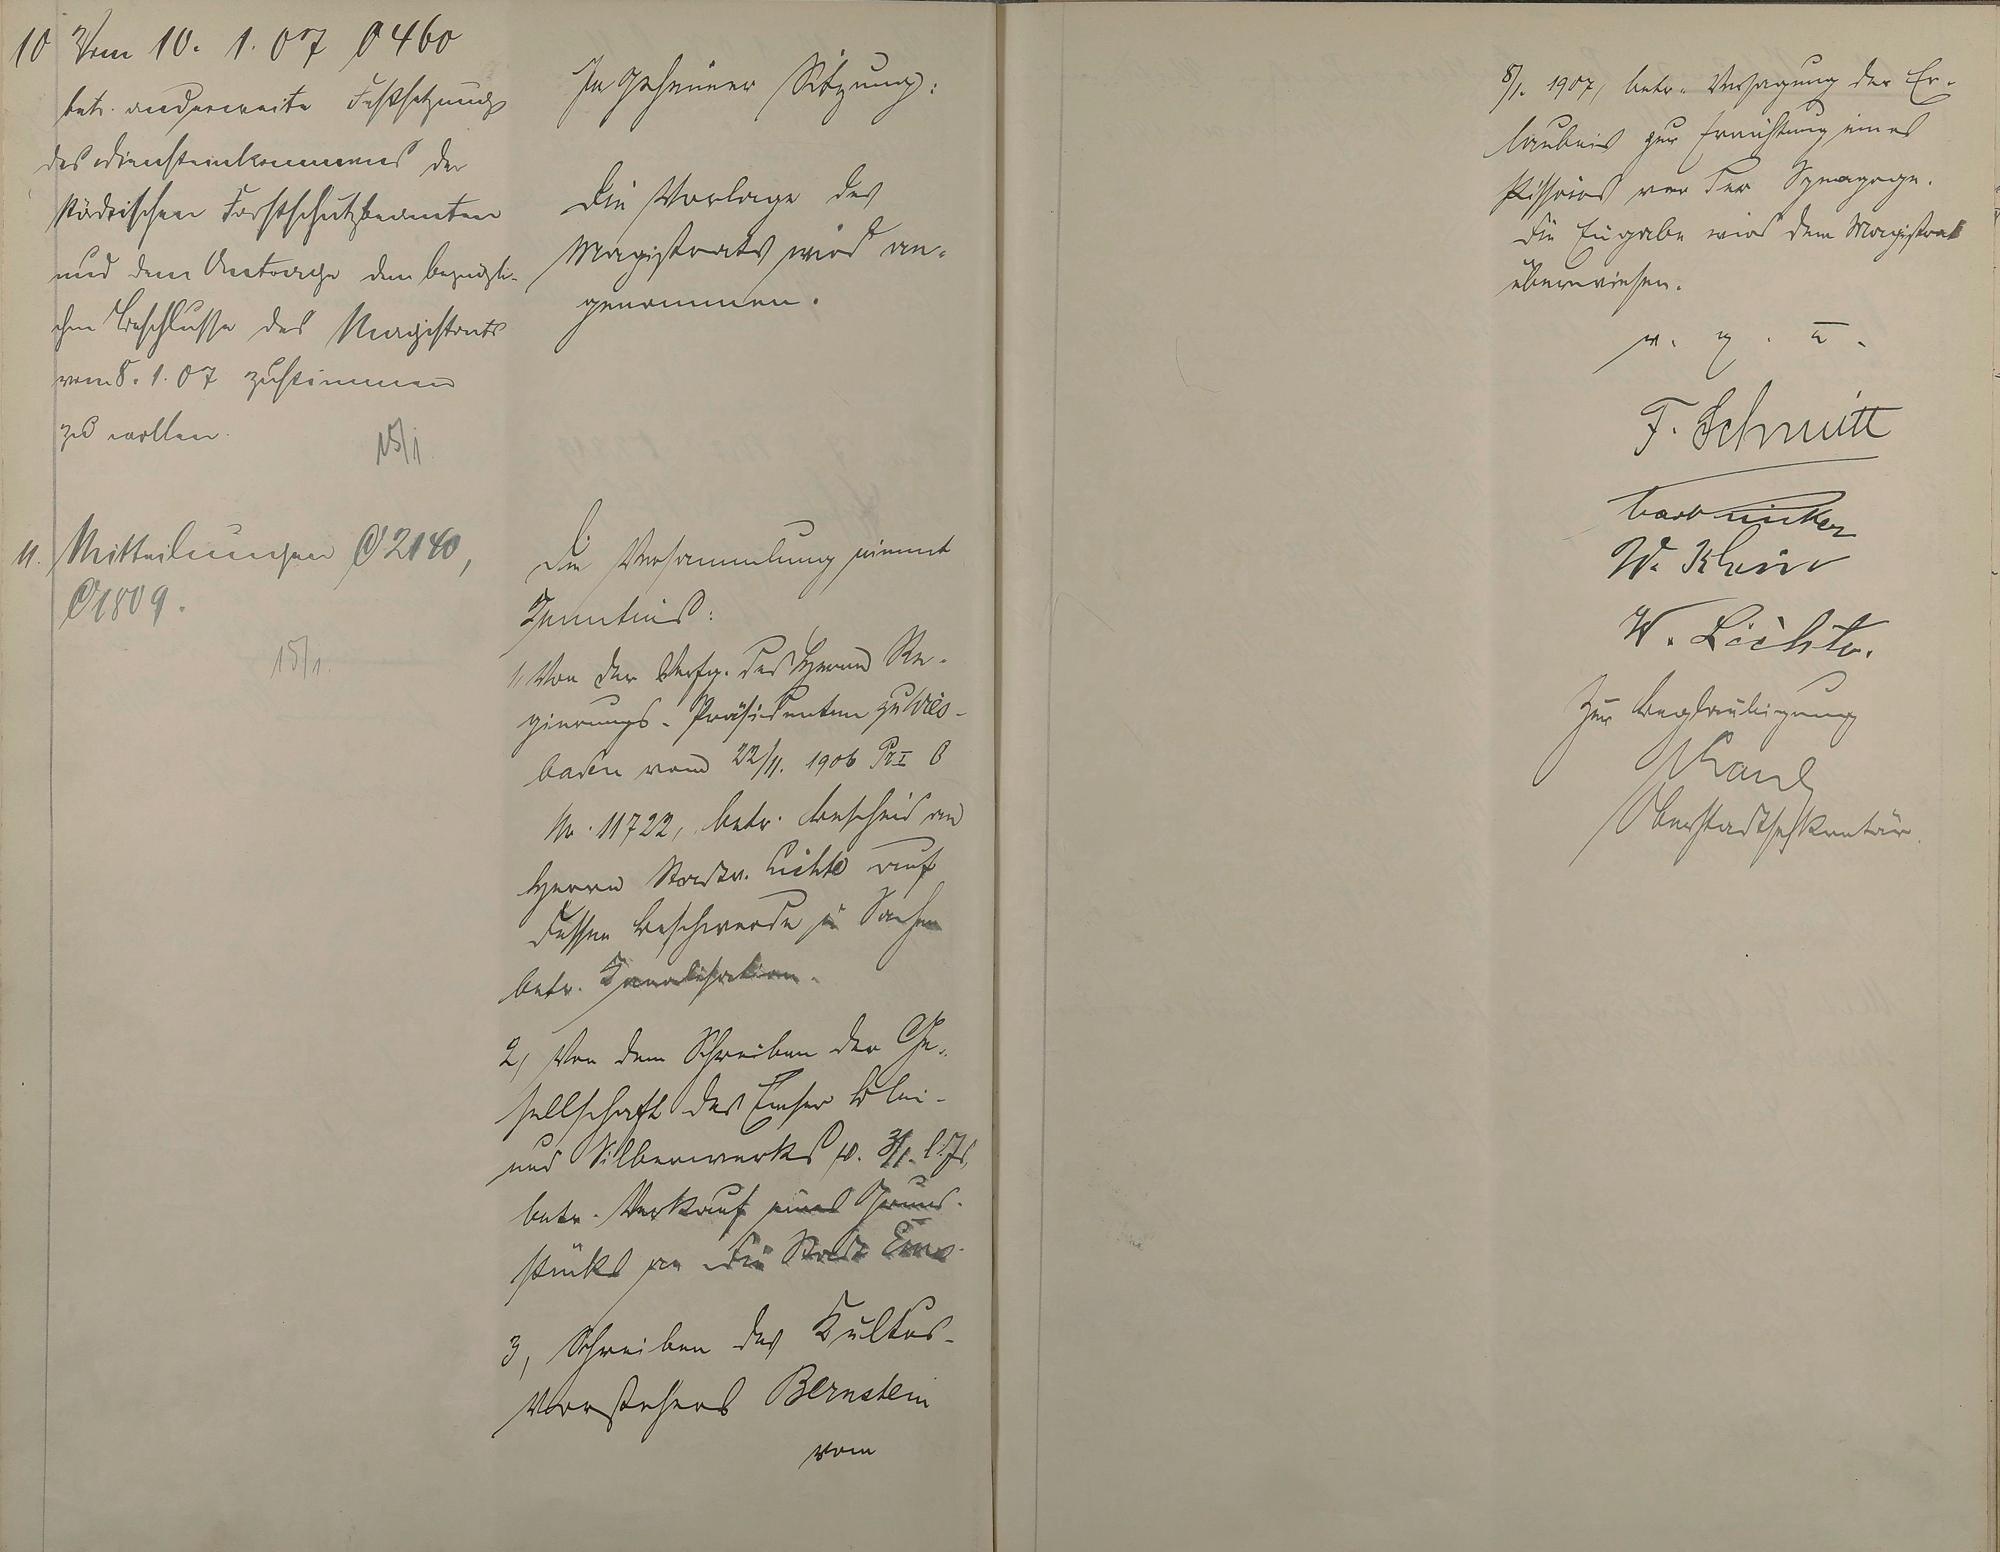 10 Vom 10. 1. 07 C 460
betr. anderweite Festsetzung
des Diensteinkommens der
städtischen Forstschutzbeamten
und dem Antrage dem bezügli-
chen Beschlusse des Magistrats
vom 8. 1. 07 zustimmen
zu wollen.
15/1
11. Mitteilungen C 2140,
C 1809.
15/1.
In geheimer Sitzung:
Die Vorlage des
Magistrats wird an-
genommen.
Die Versammlung nimmt
Kenntnis:
1, Von der Verfg. des Herrn Re-
gierungs-Präsidenten zu Wies-
baden vom 22/11. 1906 Pr I B
Nr. 11722, betr. Bescheid an
Herrn Stadtv. Lichte auf
dessen Beschwerde in Sachen
betr. Kanalisation.
2, Von dem Schreiben der Ge-
sellschaft des Emser Blei-
und Silberwerks v. 3/1. l. Js.
betr. Verkauf eines Grund-
stücks an die Stadt Ems.
3, Schreiben des Kultus-
Vorstehers Bernstein
vom
8/1. 1907, betr. Versagung der Er-
laubnis zur Errichtung eines
Pissoirs vor der Synagoge.
Die Eingabe wird dem Magistrat
überwiesen.
v. g. u.
F. Schmitt
W. Klein
W. Lichte.
Zur Beglaubigung
Oberstadtsekretär.